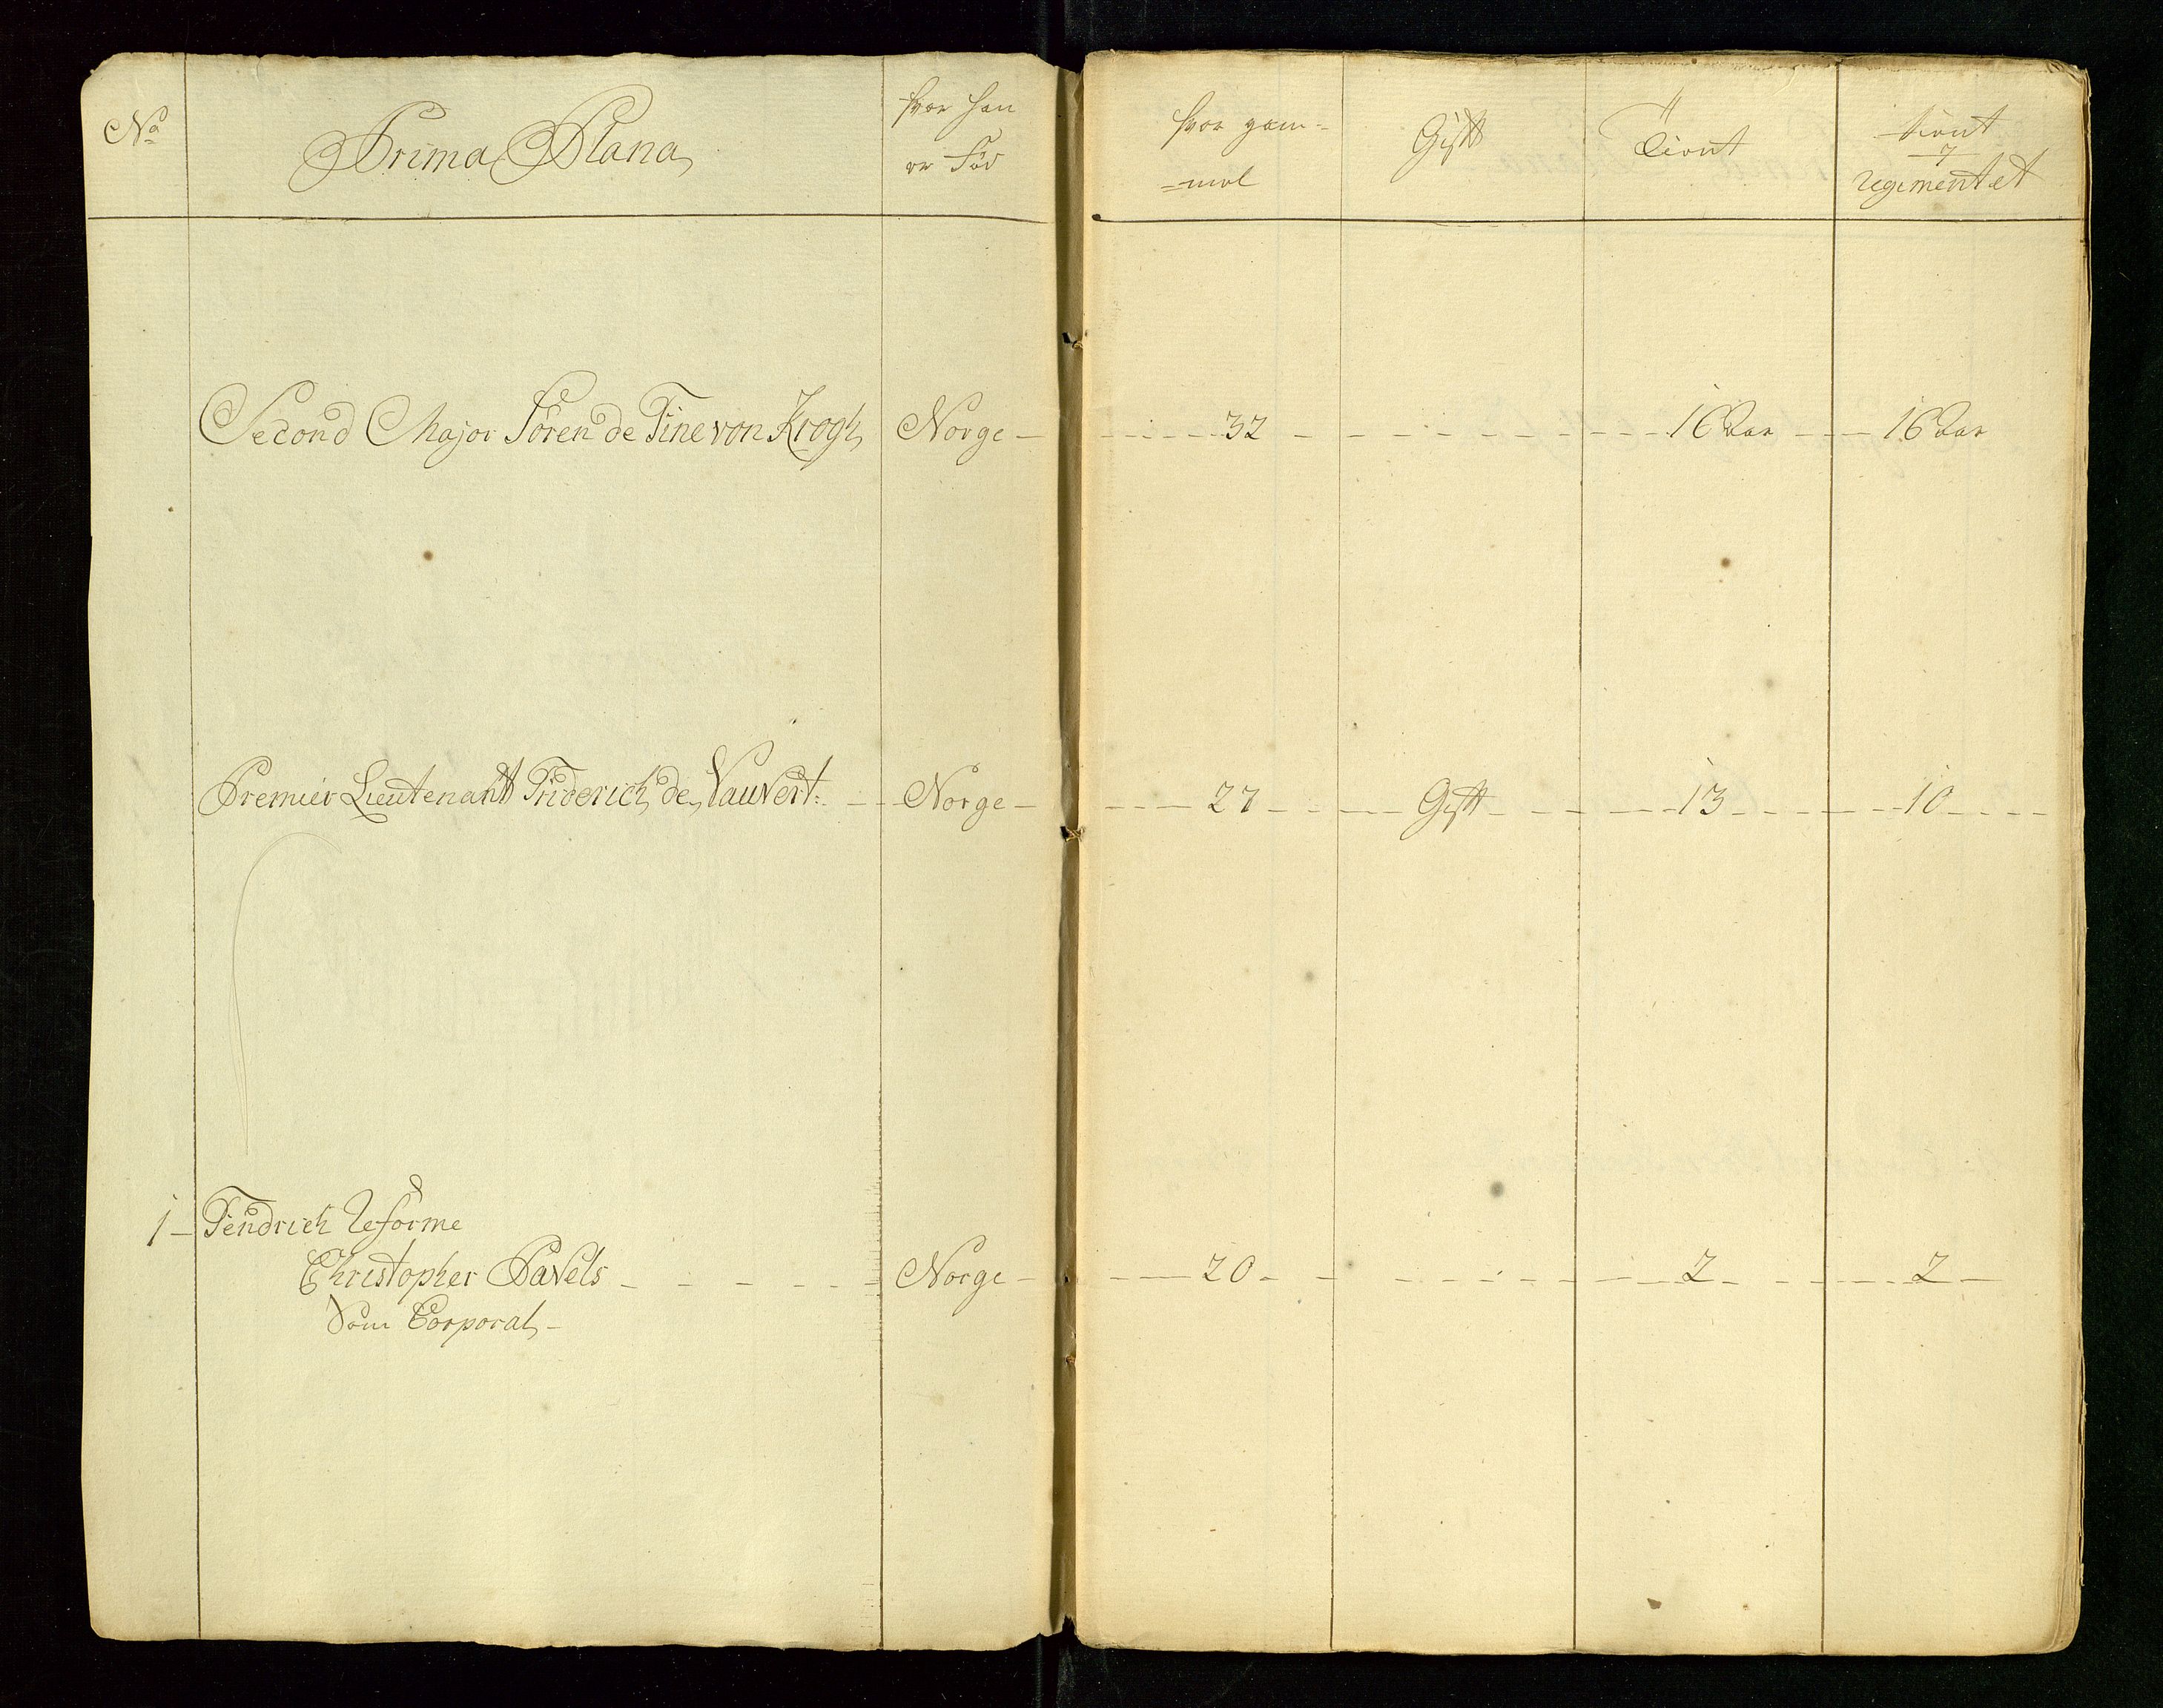 No
Prima Plana
hvor han
er Fød
hvor gam=
=mel
Gift
Tient
tient
v
regimentet
Second Major Sören de Fine von Krogh Norge 32 16 Aar 16 Aar
Premier Lieutenant Friderich de Vauvert: Norge 27 Gift 13 10
1 Fendrich Reforme
Christopher Pavels Norge 20 2 2
Som Corporal